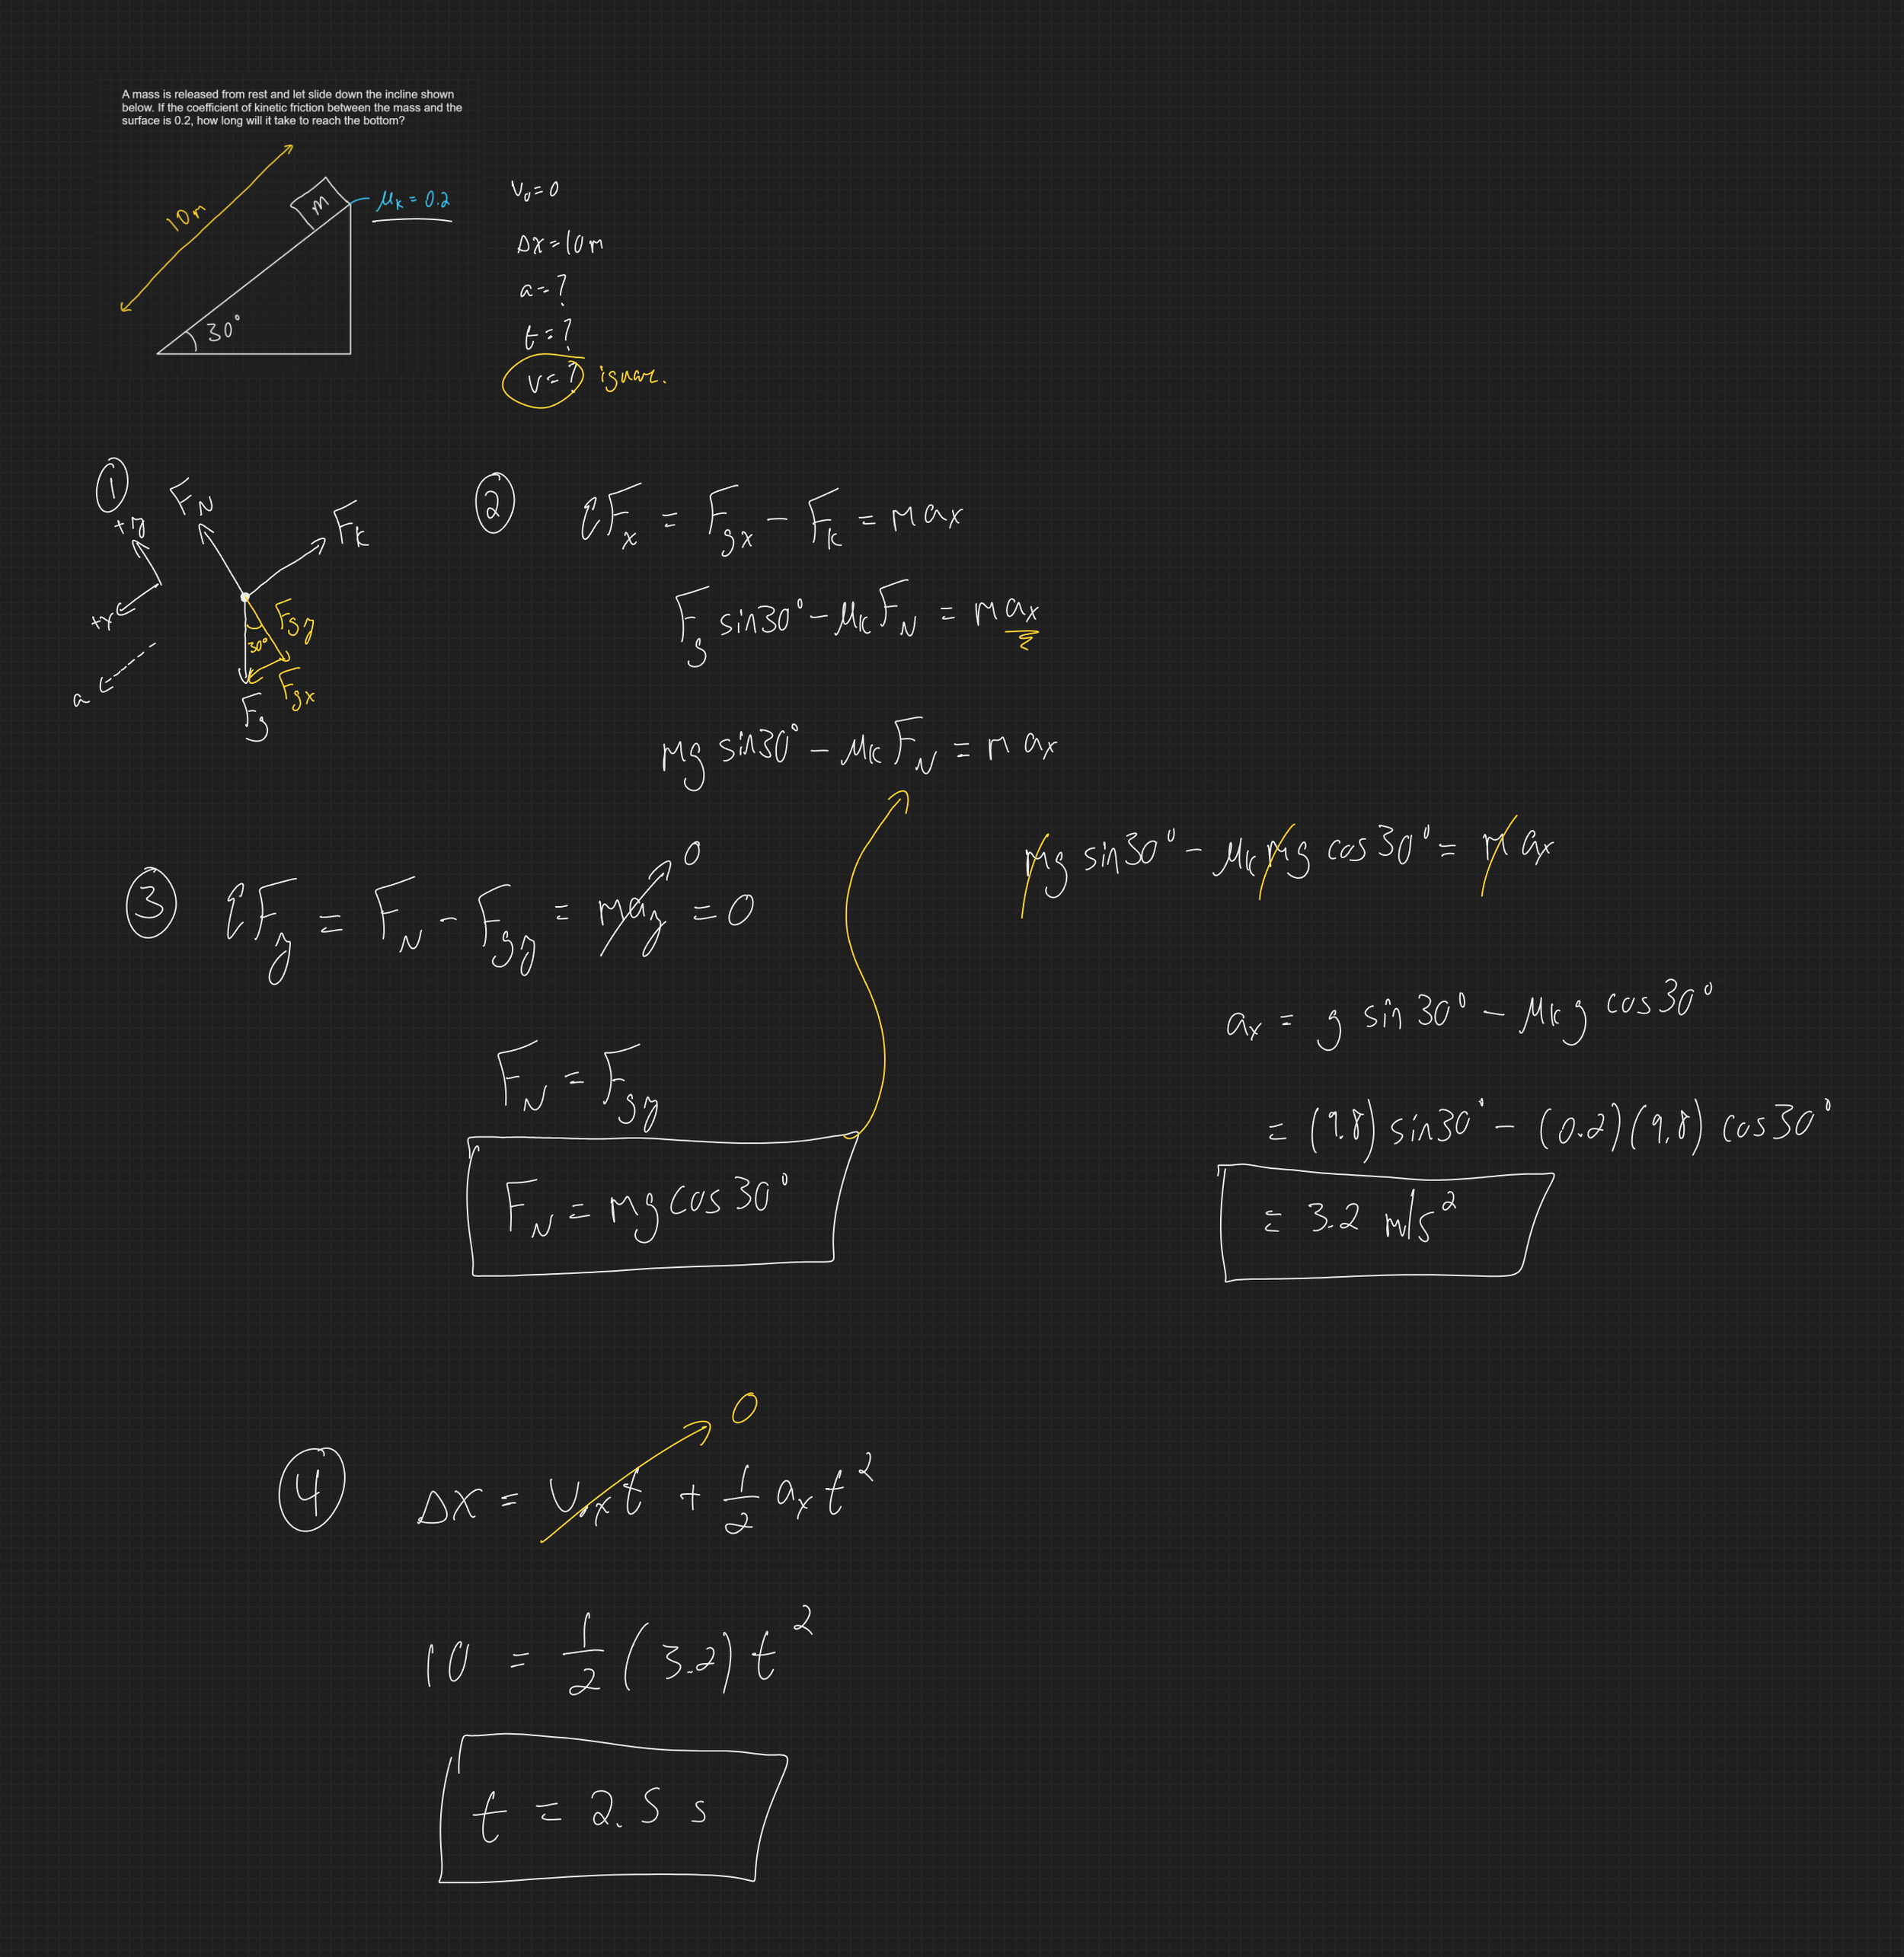 A mass is released from rest and let slide down the incline shown
below. If the coefficient of kinetic friction between the mass and the
surface is 0.2, how long will it take to reach the bottom?
10m
m
μk = 0.2
30°
v₀ = 0
Δx = 10m
a = ?
t = ?
v = ? ignore.
①
+y
+x
a
F_N
F_k
F_gy
30°
F_gx
F_g
②
ΣF_x = F_gx - F_k = max
F_g sin30° - μk F_N = max
mg sin30° - μk F_N = max
mg sin30° - μk mg cos30° = max
a_x = g sin30° - μk g cos30°
= (9.8) sin30° - (0.2)(9.8) cos30°
= 3.2 m/s²
③
ΣF_y = F_N - F_gy = ma_y = 0
0
F_N = F_gy
F_N = mg cos30°
④
0
Δx = v₀ₓt + 1/2 a_x t²
10 = 1/2 (3.2) t²
t = 2.5 s